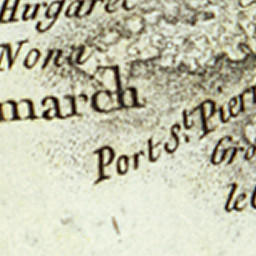 Hugaret
Nona
march
Port St. Pierr
Gro
le